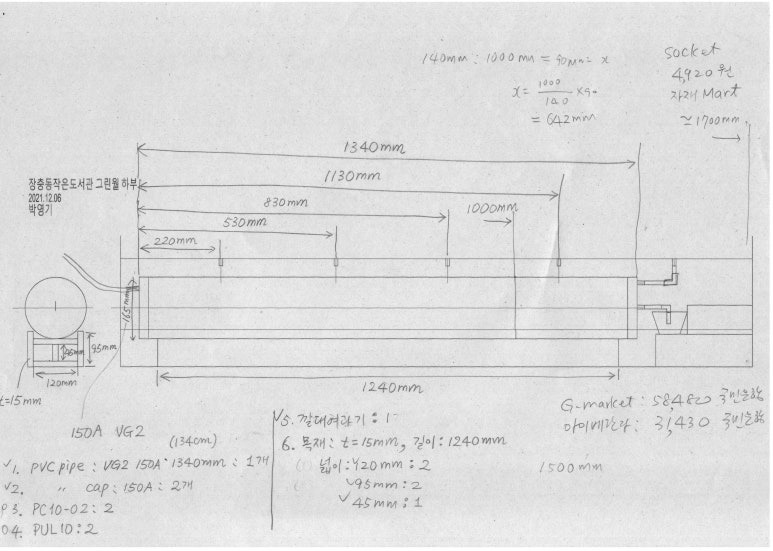 140mm : 1000mm = 90mm = x
x = 1000/140 × 90
= 642mm
socket
4,920원
자재 Mart
≃1700mm
1340mm
1130mm
830mm
530mm
1000mm
220mm
장충동작은도서관 그린월 하부
2021.12.06
박영기
165mm
95mm
45mm
120mm
t=15mm
1240mm
150A VG2
(134cm)
✓1. PVC pipe : VG2 150A·1340mm : 1개
✓2. 〃 cap : 150A : 2개
3. PC10-02 : 2
4. PUL10 : 2
✓5. 깔대여과기 : 1
6. 목재 : t=15mm, 길이 : 1240mm
넓이 : 120mm : 2
✓95mm : 2
✓45mm : 1
G-market : 58,420
31,430
1500mm